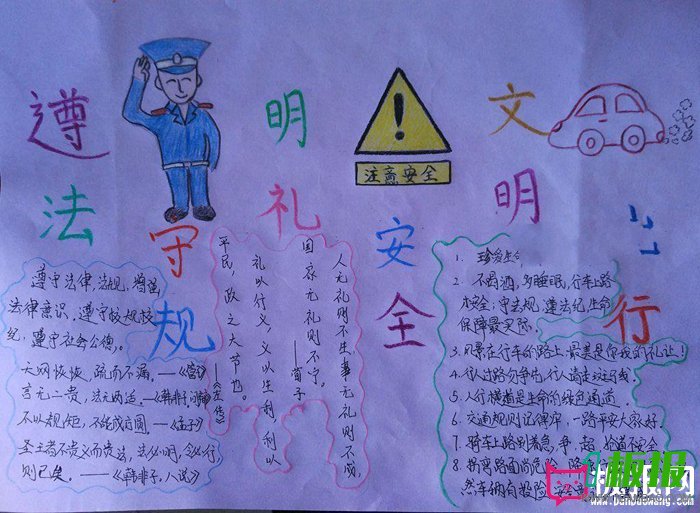 遵法守规
明礼安全
文明出行
注意安全
遵守法律,法规,增强
法律意识。遵守校规校
纪,遵守社会公德。
天网恢恢,疏而不漏。——《老子》
言无二贵,法无两适。——《韩非子·问辩》
不以规矩,不能成方圆——《孟子》
圣王者不贵义而贵法,法必明,令必行
则已矣。——《韩非子,人说》
人无礼则不生,事无礼则不成,
国家无礼则不宁。
——荀子
礼以行义,义以生利,利以
平民,政之大节也。
——《左传》
1. 珍爱生
2. 不喝酒,多睡眠,行车上路
才安全,守法规,遵法纪,生命
保障最实际
3. 风景在行车的路上,最美是你我的礼让!
4. 行人过路勿争先,行人道走斑马线。
5. 人行横道是生命的绿色通道。
6. 交通规则记得牢,一路平安大家好。
7. 骑车上路别着急,争,超,抢道不安全
8.
板报